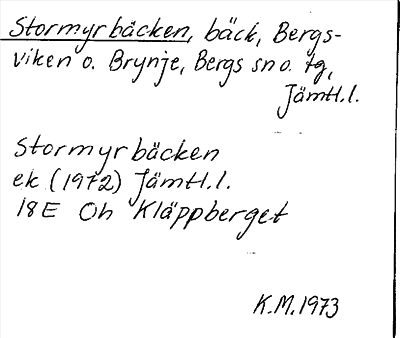 Stormyrbäcken, bäck, Bergs-
viken o. Brynje, Bergs sn o. tg,
Jämtl.l.
Stormyrbäcken
ek (1972) Jämtl.l.
18E Oh Kläppberget
K.M.1973